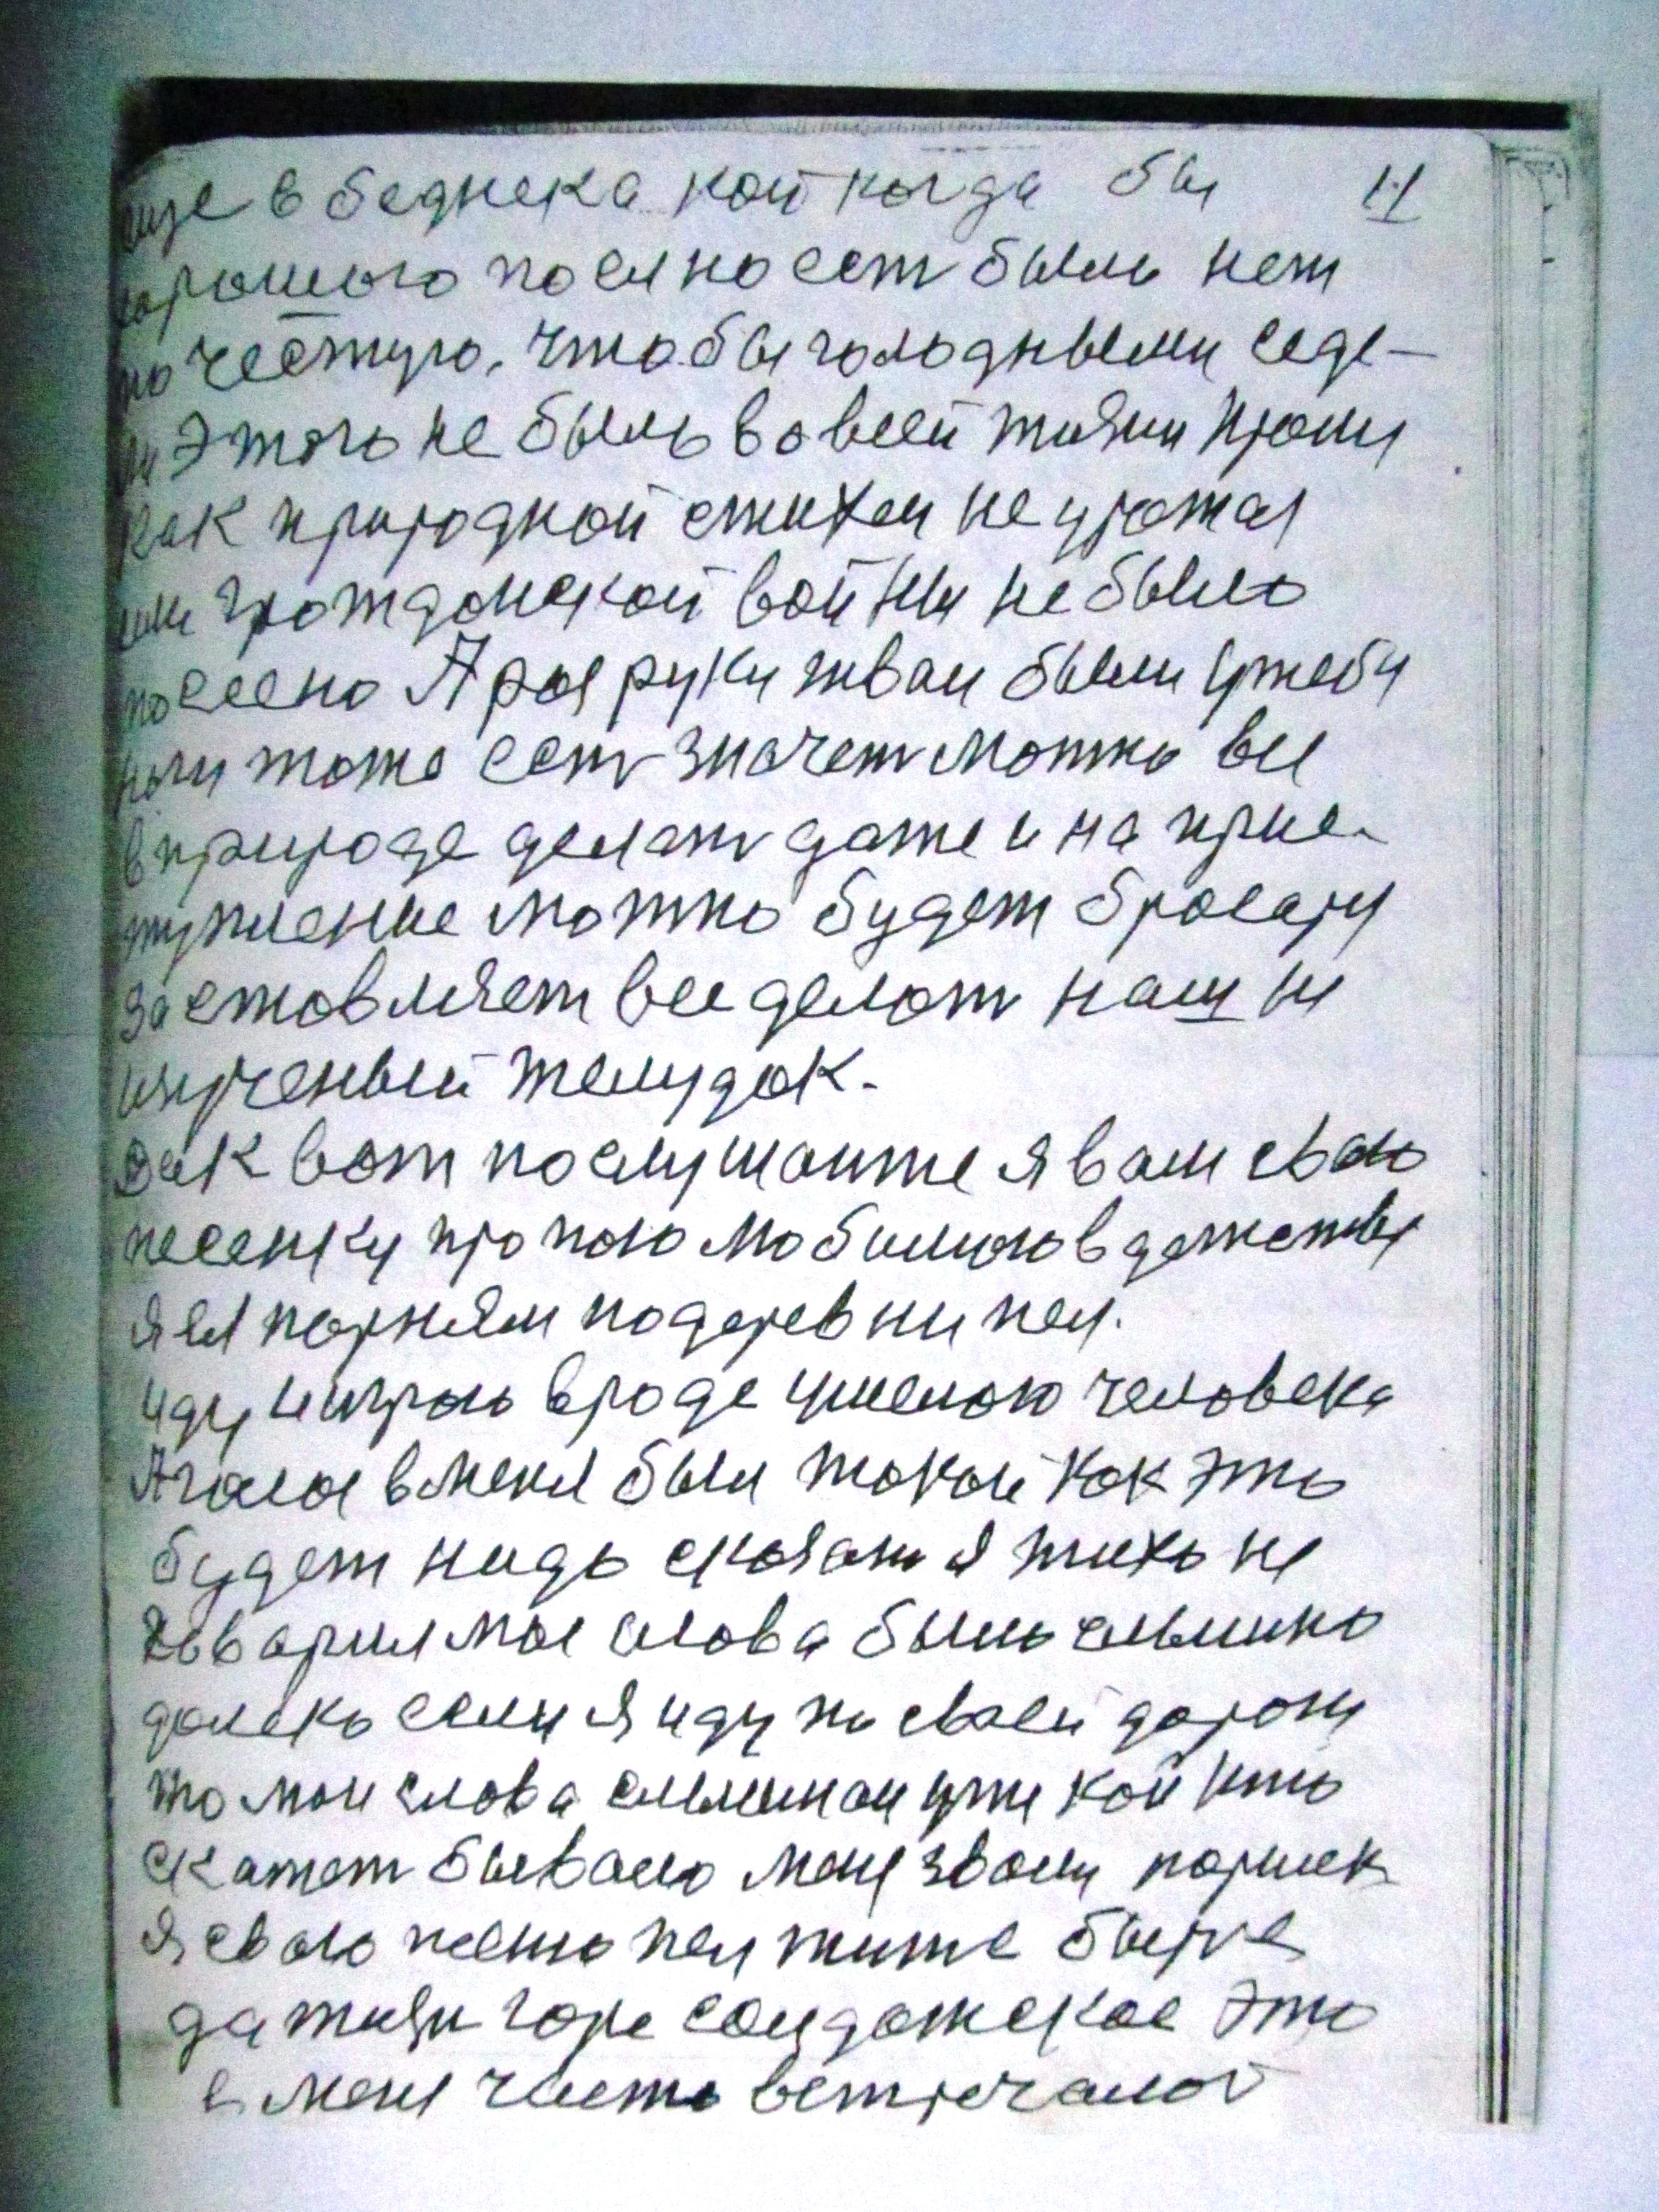 еще в беднека кой когда бы 11
хорошого поел но ест было нет
по честую, что бы голодными седе-
ли этого не было во всей жизни кроми
как природной стихеи не урожая
или грождонской войны не было
посеено А роя руки тваи были уже бы
ноги тоже ест значет можно все
в природе делат даже и на прис-
тупление можно будет бросаця
заставляет все делат наш ни
научёный желудок.
Дак вот послушаите я вам сваю
песенку пропаю любимою в детстве
я ел парням по деревни пел.
иду и играю вроде умелого человека
А голос в меня был такой как это
будет надо сказат я тихо не
говарил мое слова было слышно
далеко если я иду по своей дароги
то мои слова слышнои уже кой кто
скажет бывало меня звали паршек
я сваю песню пел жите бытье
да жизн горе солдатское это
в меня часто встречалос